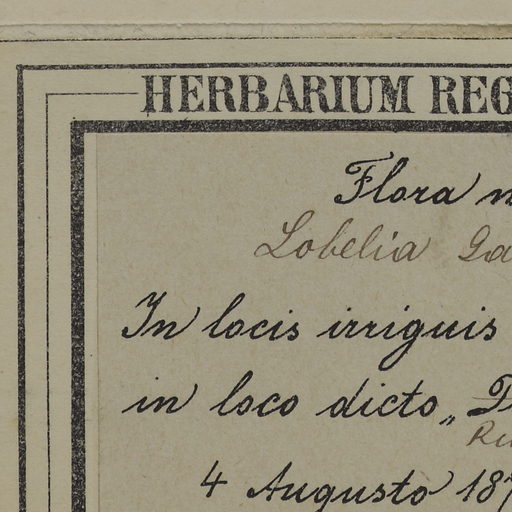 HERBARIUM REG
Flora
Lobelia Ga
In locis irriguis
in loco dicto „
4 Augusto 187